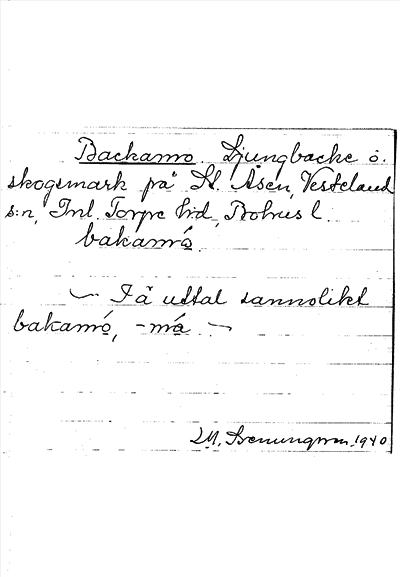 Backamo. Ljungbacke o.
skogsmark på St. Åsen, Vesteland
s:n, Inl. Torpe h:d, Bohus l.
bakamó.
— Få uttal sannolikt
bakamó, -má. —
1940